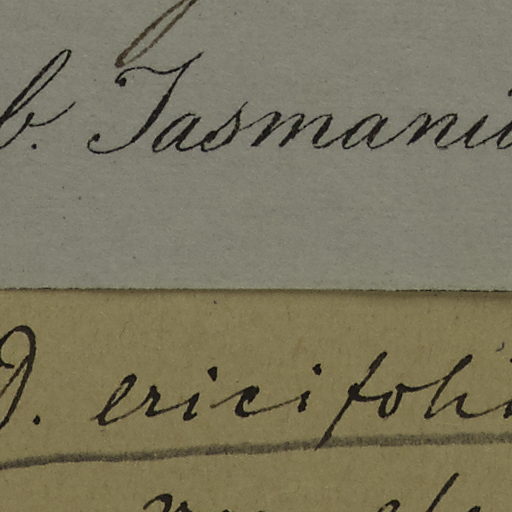 b. Tasmani
D. ericifoli